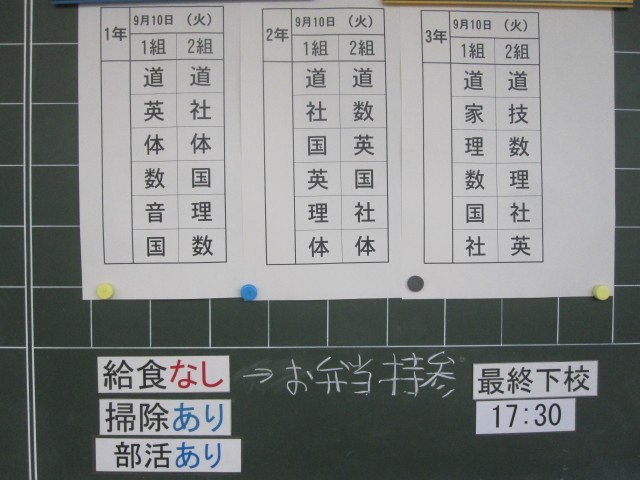 1年 9月10日 (火)
1組 2組
道 道
英 社
体 体
数 国
音 理
国 数
2年 9月10日 (火)
1組 2組
道 道
社 数
国 英
英 国
理 社
体 体
3年 9月10日 (火)
1組 2組
道 道
家 技
理 数
数 理
国 社
社 英
給食なし →お弁当持参
掃除あり
部活あり
最終下校
17:30